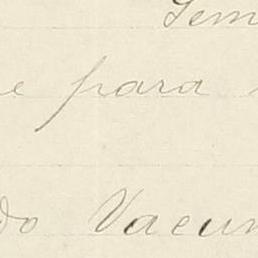 Sem
e para
do Vacun